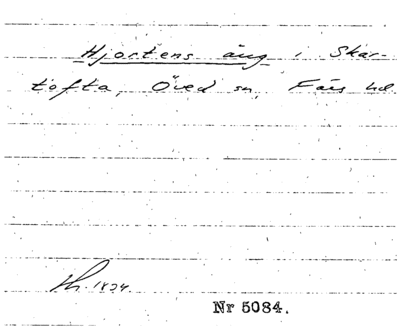 Hjortens äng i Skar-
tofta, Öved sn, Färs hd.
Th. 1834
Nr 5084.